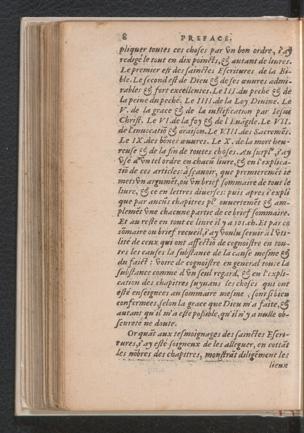 8 PREFACE.
pliquer toutes ces choses par vn bon ordre, i'ay
redigé le tout en dix poincts, & autant de liures.
Le premier est des sainctes Escritures de la Bi-
ble. Le second est de Dieu & de ses œuures admi-
rables & fort excellentes. Le III. du peché & de
la peine du peché. Le IIII. de la Loy Diuine. Le
V. de la grace & de la iustification par Iesus
Christ. Le VI. de la foy & de l'Euãgile. Le VII.
de l'inuocatiõ & oraison. Le VIII. des Sacremẽs.
Le IX. des bõnes œuures. Le X. de la mort heu-
reuse & de la fin de toutes choses. Au surp', i'ay
vsé d'vn tel ordre en chacũ liure, & en l'explica-
tiõ de ces articles: à sçauoir, que premieremẽt ie
mets vn argumẽt, ou vn brief sommaire de tout le
liure, & ce en lettres diuerses: puis apres i'expli
que par aucũs chapitres p' ouuertemẽt & am-
plemẽt vne chacune partie de ce brief sommaire.
Et au reste en tout ce liure il y a 101. ch. Et par ce
sõmaire ou brief recueil, i'ay voulu seruir à l'vti-
lité de ceux qui ont affectiõ de cognoistre en tou-
tes les causes la substance de la cause mesme &
du faict: voire de cognoistre en general toute la
substance comme d'vn seul regard, & en l'expli-
cation des chapitres suyuans les choses qui ont
esté enseignees au sommaire mesme, sont si bien
confermees, selon la grace que Dieu m'a faite, &
autant qu'il m'a esté possible, qu'il n'y a nulle ob-
scurete ne doute.
Or quãt aux tesmoignages des sainctes Escri-
tures, i'ay esté soigneux de les alleguer, en cottãt
les nõbres des chapitres, monstrãt diligẽment les
lieux